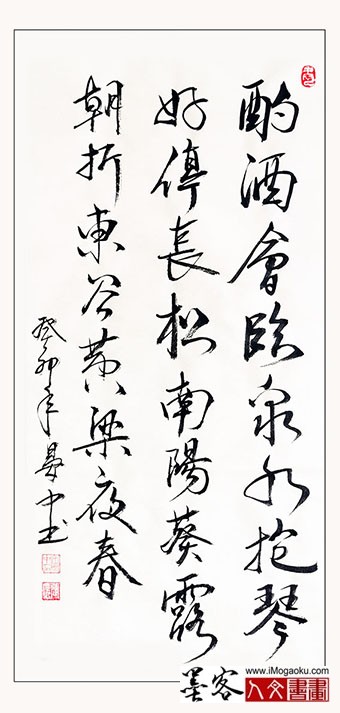 酌酒會臨泉水抱琴
好停長松南陽葵露
朝折東谷黃梁夜春
癸卯年
墨客
www.iMogaoku.com
人文書畫